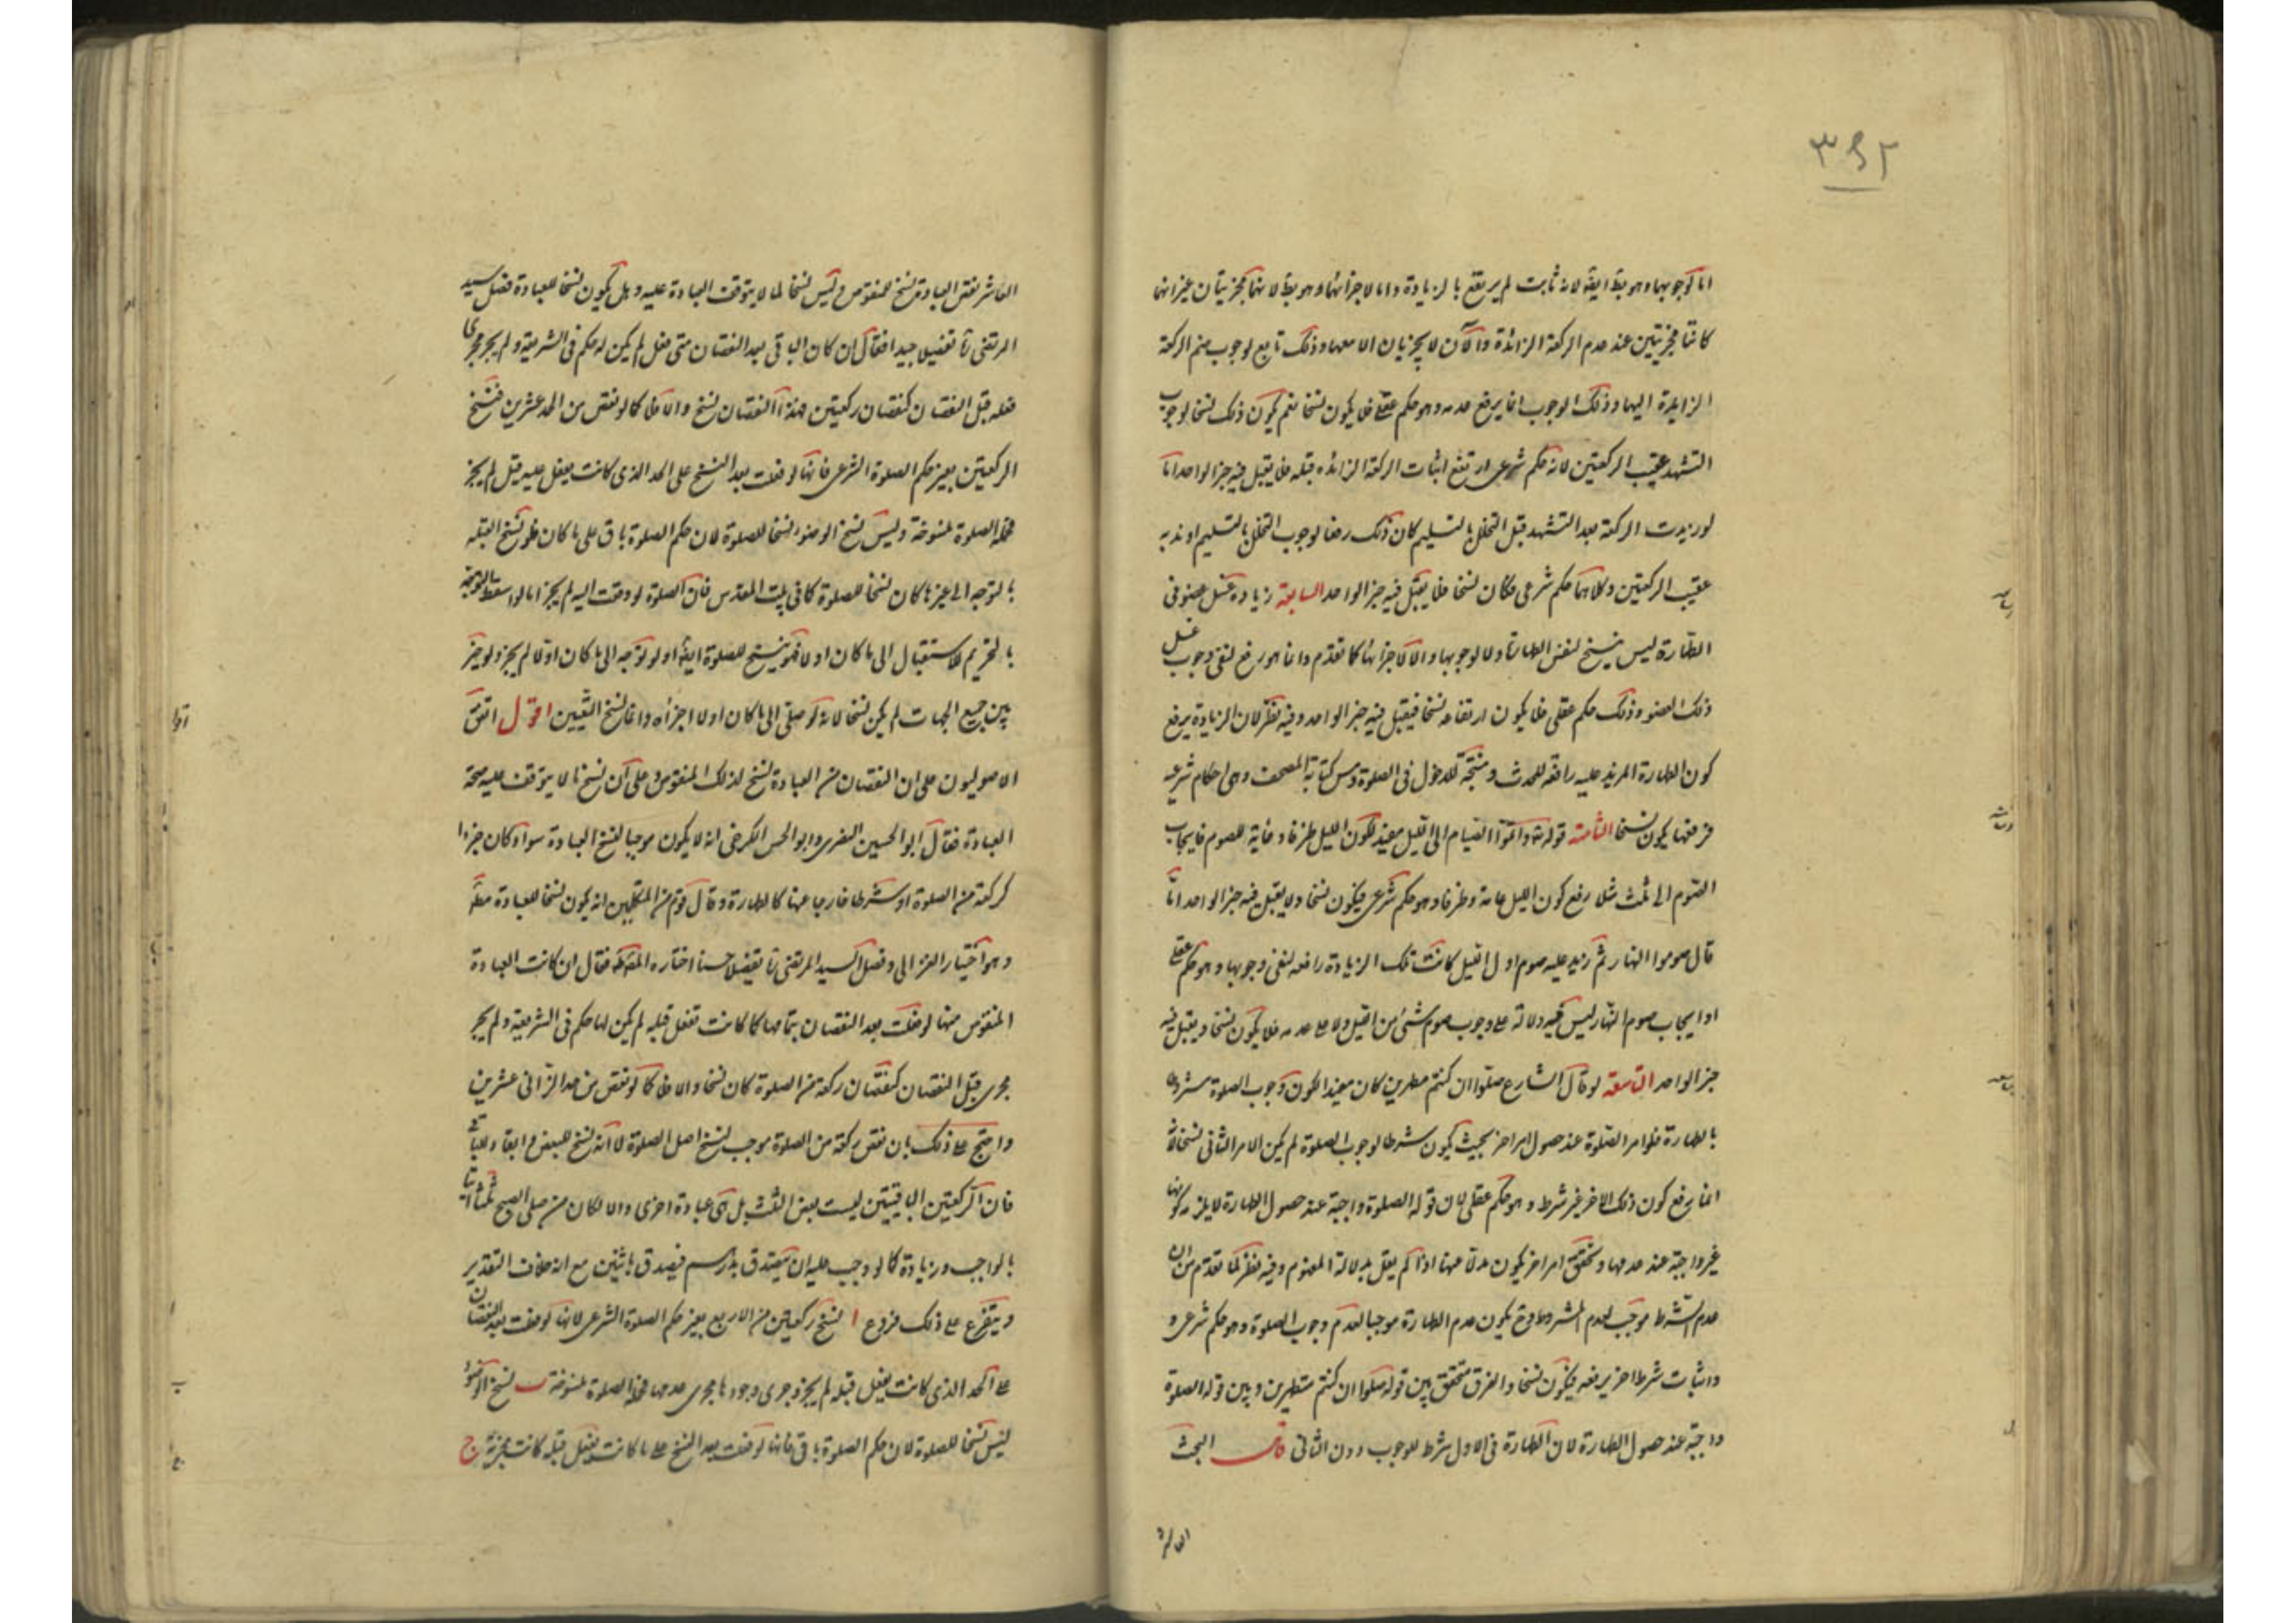 ٣٩٢
اما لوجوبها وهو بط ايضا لانه ثابت لم يرتفع بالزيادة واما لاجزائها وهو بط لانهما مجزيتان غير انهما
كانتا مجزيتين عند عدم الركعة الزائدة والآن لا يجزيان الا معها وذلك تابع لوجوب ضم الركعة
الزايدة اليها وذلك الوجوب انما يرفع عدمه وهو حكم عقلى فلا يكون نسخا نعم يكون ذلك نسخا لوجوب
التشهد عقيب الركعتين لانه حكم شرعى ارتفع اثبات الركعة الزائده قبله فلا يقبل فيه خبر الواحد اما
لو زيدت الركعة بعد التشهد قبل التحلل بالتسليم كان ذلك رفعا لوجوب التحلل بالتسليم او ندبه
عقيب الركعتين وكلاهما حكم شرعى فكان نسخا فلا يقبل فيه خبر الواحد السابعة زيادة غسل عضو فى
الطهارة ليس بنسخ لنفس الطهارة ولا لوجوبها ولا لاجزائها كما تقدم وانما هو رفع لنفى وجوب غسل
ذلك العضو وذلك حكم عقلى فلا يكون ارتفاعه نسخا فيقبل فيه خبر الواحد وفيه نظر لان الزيادة يرفع
كون الطهارة المزيد عليه رافعة للحدث و مبيحة للدخول فى الصلوة ومس كتابة المصحف وهى احكام شرعية
فرفعها يكون نسخا الثامنة قوله تع واتموا الصيام الى الليل مفيد لكون الليل طرفا وغاية للصوم فايجاب
الصوم الى ثلث مثلا رفع كون الليل غاية وطرفا وهو حكم شرعى فيكون نسخا ولا يقبل فيه خبر الواحد امّا
قال صوموا النهار ثم زيد عليه صوم اول الليل كانت تلك الزيادة رافعه لنفى وجوبها وهو حكم عقلى
او ايجاب صوم النهار ليس فيه دلالة على وجوب صوم شئ من الليل ولا على عدمه فلا يكون نسخا ويقبل فيه
خبر الواحد التاسعة لو قال الشارع صلوا ان كنتم مطهرين كان مفيدا لكون وجوب الصلوة مشروط
بالطهارة فلو امر الصلوة عند حصول امر اخر بحيث يكون شرطا لوجوب الصلوة لم يكن الامر الثانى نسخا لانه
انما رفع كون ذلك الاخر غير شرط وهو حكم عقلى لان قوله الصلوة واجبة عند حصول الطهارة لا يلزمه كونها
غير واجبة عند عدمها وتحقق امر اخر يكون بدلا عنها اذا لم يقل بدلالة المفهوم وفيه نظر لما تقدم من ان
عدم الشرط موجب لعدم المشروط وح يكون عدم الطهارة موجبا لعدم وجوب الصلوة وهو حكم شرعى و
واثبات شرط اخر يرفعه فيكون نسخا والفرق متحقق بين قوله صلوا ان كنتم متطهرين وبين قوله الصلوة
واجبة عند حصول الطهارة لان الطهارة فى الاول شرط للوجوب دون الثانى قال البحث
العاشر
العاشر نقص العبادة نسخ للمنقوص وليس نسخا لما لا يتوقف العبادة عليه وهل يكون نسخا للعبادة فصل السيد
المرتضى رة تفصيلا جيدا فقال ان كان الباقى بعد النقصان متى فعل لم يكن له حكم فى الشريعة ولم يجر مجرى
فعله قبل النقصان كنقصان ركعتين فهذا النقصان نسخ والا فلا كما لو نقص من الحد عشرين فنسخ
الركعتين يغير حكم الصلوة الشرعى فانها لو فعلت بعد النسخ على الحد الذى كانت يفعل عليه قبل لم يجز
فجملة الصلوة منسوخة وليس نسخ الوضوء نسخا للصلوة لان حكم الصلوة باق على ما كان فلو نسخ القبلة
بالتوجه الى غيرها كان نسخا للصلوة كما فى بيت المقدس فان الصلوة لو وقعت اليه لم يجز اما لو اسقط التوجه
بالتحريم للاستقبال الى ما كان اولا فهو نسخ للصلوة ايضا ولو توجه الى ما كان اولا لم يجز ولو خير
بين جميع الجهات لم يكن نسخا لانه لو صلى الى ما كان اولا اجزأه وانما نسخ التعيين اقول اتفق
الاصوليون على ان النقصان من العبادة نسخ لذلك المنقوص وعلى ان نسخ ما لا يتوقف عليه صحة
العبادة فقال ابو الحسين البصرى وابو الحسن الكرخى انه لا يكون موجبا لنسخ العبادة سواء كان جزءا
كركعة من الصلوة او شرطا خارجا عنها كالطهارة وقال قوم من المتكلمين انه يكون نسخا للعبادة مط
وهو اختيار الغزالى وفصل السيد المرتضى رة تفصيلا حسنا اختاره المص فقال ان كانت العبادة
المنقوص منها لو فعلت بعد النقصان بتمامها كما كانت تفعل قبله لم يكن لها حكم فى الشريعة ولم يجر
مجرى قبل النقصان كنقصان ركعة من الصلوة كان نسخا والا فلا كما لو نقص من حد الزانى عشرين
واحتج على ذلك بان نقص ركعة من الصلوة موجب نسخ اصل الصلوة لا انه نسخ للبعض وابقاء للباقى
فان الركعتين الباقيتين ليست بعض الثلث بل هى عبادة اخرى والا لكان من صلى الصبح ثلثا اتيا
بالواجب وزيادة كما لو وجب عليه ان يتصدق بدرهم فيصدق باثنين مع انه خلاف التقدير
ويتفرع على ذلك فروع ا نسخ ركعتين من الاربع يغير حكم الصلوة الشرعى لانها لو فعلت بعد النقصان
على الحد الذى كانت يفعل قبله لم يجز وجرى وجودها مجرى عدمها فجملة الصلوة منسوخة ب نسخ الوضوء
ليس نسخا للصلوة لان حكم الصلوة باق فانها لو فعلت بعد النسخ على ما كانت يفعل قبله كانت مجزية ج